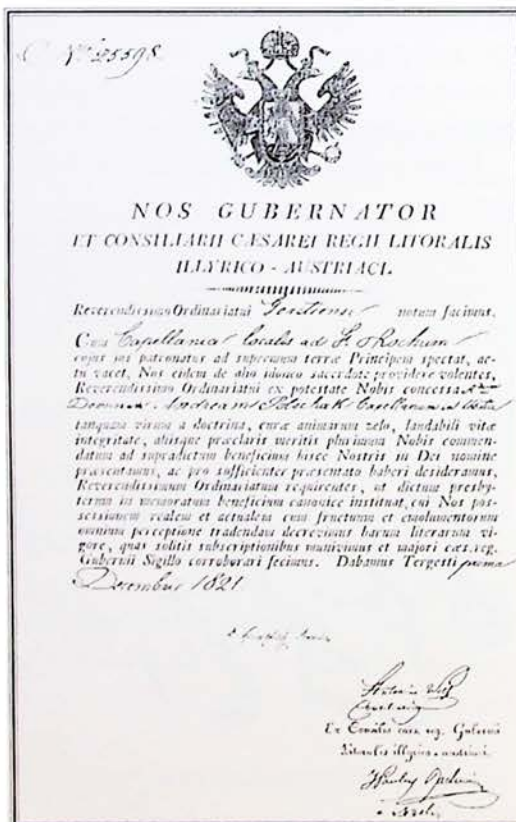 Nº 25598
NOS GUBERNATOR
ET CONSILIARII CÆSAREI REGII LITORALIS
ILLYRICO - AUSTRIACI.
Reverendissimo Ordinariatui notum facimus.
Cum Capellania localis ad St. Rochum
cujus jus patronatus ad supremum terræ Principem spectat, ac-
tu vacet, Nos eidem de alio idoneo sacerdote providere volentes,
Reverendissimo Ordinariatui ex potestate Nobis concessa
Dominum Andream Capellanum
tanquam virum a doctrina, curæ animarum zelo, laudabili vitæ
integritate, aliisque præclaris meritis plurimum Nobis commen-
datum ad supradictum beneficium hisce Nostris in Dei nomine
præsentamus, ac pro sufficienter præsentato haberi desideramus,
Reverendissimum Ordinariatum requirentes, ut dictum presby-
terum in memoratum beneficium canonice instituat, cui Nos pos-
sessionem realem et actualem cum fructuum et emolumentorum
omnium perceptione tradendam decrevimus harum literarum vi-
gore, quas solitis subscriptionibus munivimus et majori cæs. reg.
Gubernii Sigillo corroborari fecimus. Dabamus Tergesti prima
December 1821
Ex Consilio cæs. reg. Gubernii